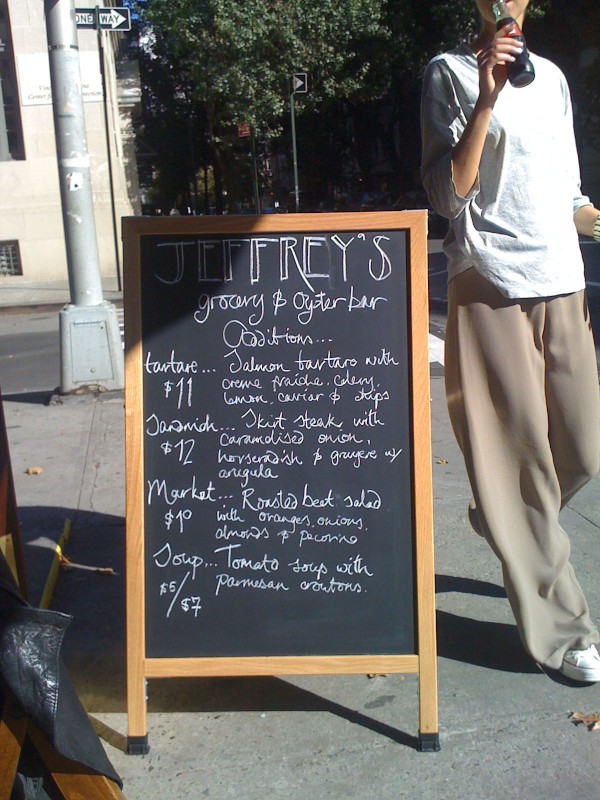 ONE WAY
JEFFREY'S
grocery & oyster bar
Additions...
tartare... Salmon tartare with
$11 creme fraiche, celery,
lemon, caviar & chips
Sandwich... Skirt steak with
$12 caramelised onion,
horseradish & gruyere w/
arugula
Market... Roasted beet salad
$10 with oranges, onions,
almonds & pecorino
Soup... Tomato soup with
$5/$7 parmesan croutons.